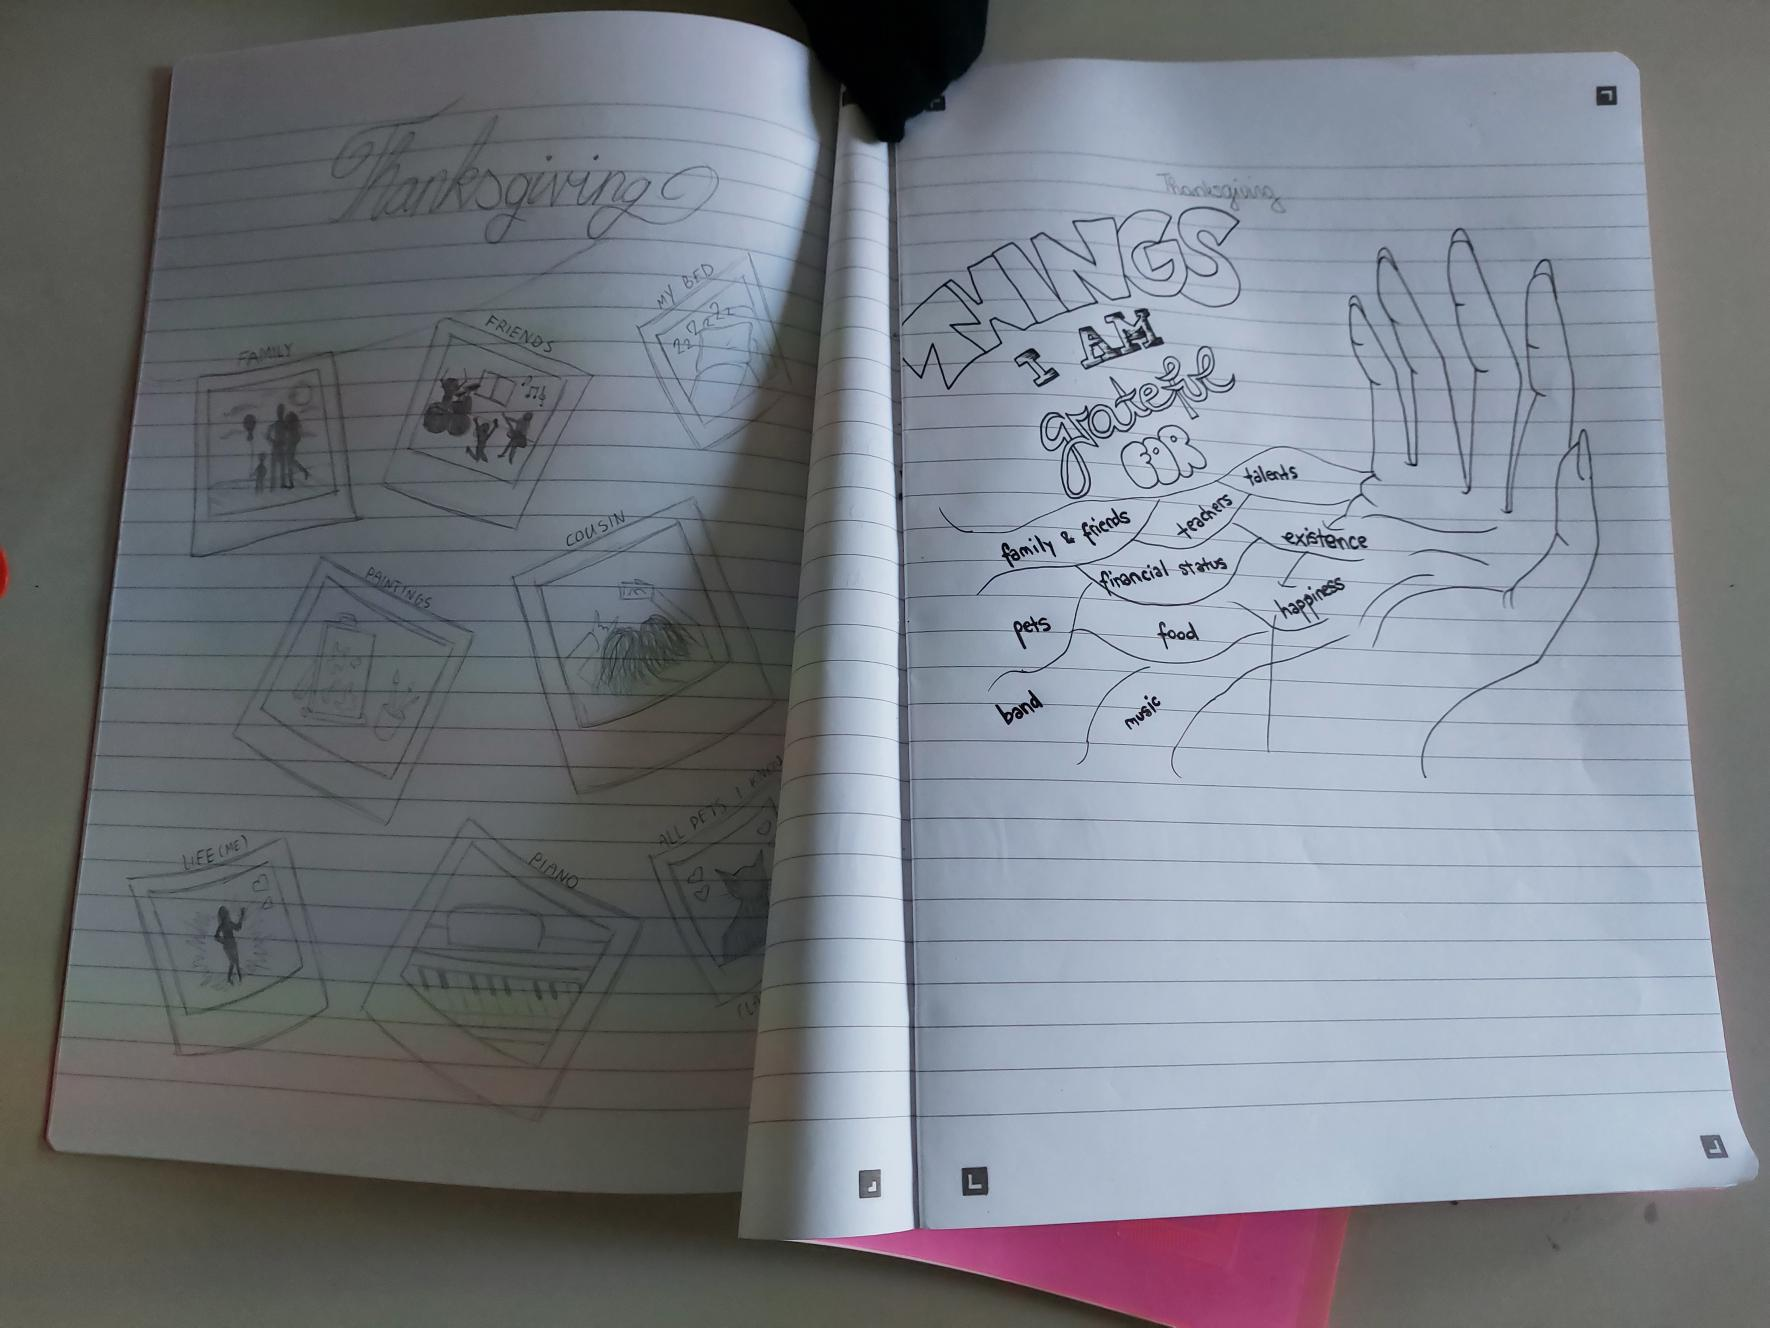 Thanksgiving
MY BED
zzzzzz
FAMILY
FRIENDS
PAINTINGS
COUSIN
LIFE (ME)
PIANO
ALL PETS I KNOW
Thanksgiving
THINGS
I AM
grateful
FOR
talents
family & friends
teachers
existence
financial status
happiness
pets
food
band
music